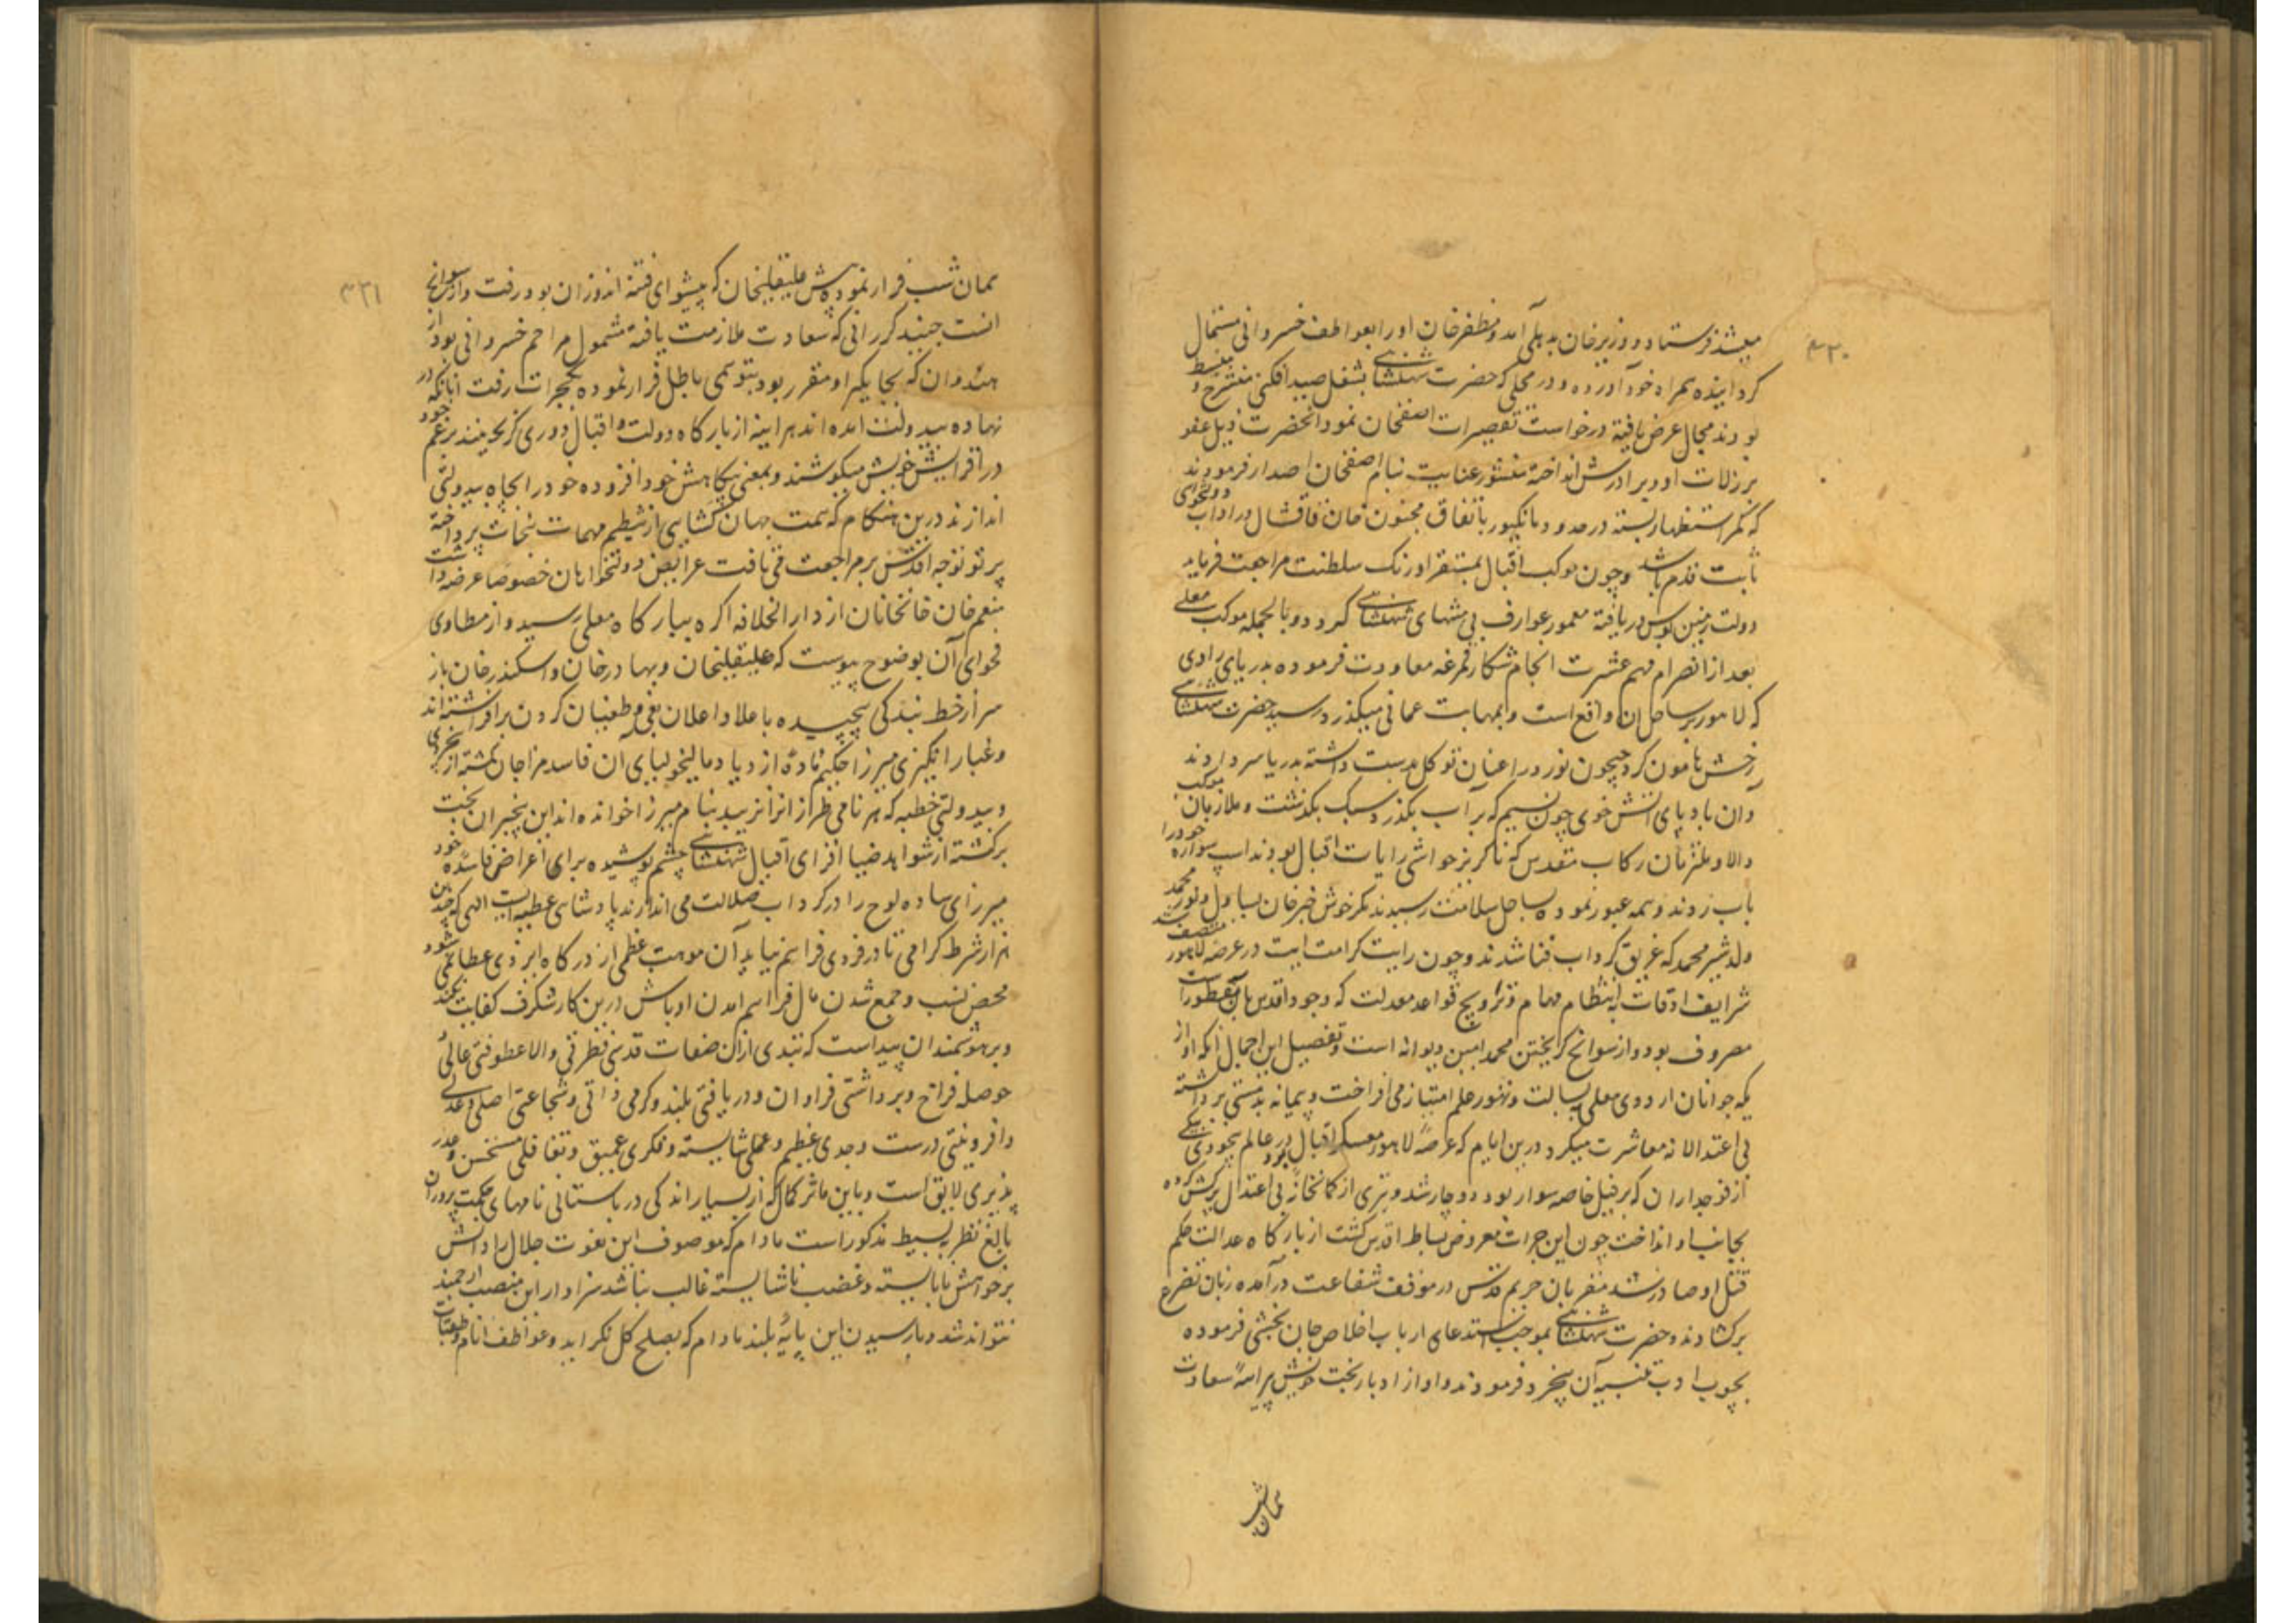 ۴۳۰
میشد فرستاد و وزیرخان بدهلی آمد و مظفرخان او را بعواطف خسروانی مستمال
کردانیده همراه خود آورده و در محلی که حضرت شهنشاهی بشغل صید افکنی منشرح و منبسط
بودند مجال عرض یافته درخواست تقصیرات آصفخان نمود آنحضرت ذیل عفو
بر زلات او و برادرش انداخته منشور عنایت بنام اصفخان اصدار فرمودند
که کمر استظهار بسته در حدود مانکپور باتفاق مجنون خان قاقشال در اداب دولتخواهی
ثابت قدم باشد و چون موکب اقبال بمستقر اورنک سلطنت مراجعت فرماید
دولت زمین بوس دریافته معمور عوارف بی منتهای شهنشاهی کردد و بالجمله موکب معلی
بعد از انصرام مهم عشرت انجام شکار قمرغه معاودت فرموده بدریای راوی
که لاهور بر ساحل ان واقع است و بمهابت عمانی میکذرد رسید حضرت شهنشاهی
رخش هامون کرد جیحون نورد را عنان توکل بدست داشته بدریا سر دادند
و ان باد پای آتش خوی چون نسیم که بر آب بکذرد سبک بکذشت و ملازمان موکب
والا و ملتزمان رکاب مقدس که ناکزیر حواشی رایات اقبال بودند اسپ سواره خود را
باب زدند و همه عبور نموده بساحل سلامت رسیدند مکر خوش خبرخان یساول و نور محمد
ولد شیر محمد که غریق کرداب فنا شدند و چون رایت کرامت ایت در عرصه لاهور منتصب
شرایف اوقات بانتظام مهام و ترویج قواعد معدلت که وجود اقدس بان مفطورست
مصروف بود و از سوانح کریختن محمد امین دیوانه است و تفصیل این اجمال آنکه او از
یکه جوانان اردوی معلی ببسالت و تهور علم امتیاز می افراخت و پیمانه بدمستی برداشته
بی اعتدالانه معاشرت میکرد درین ایام که عرصه لاهور معسکر اقبال بود در عالم بیخودی بیکی
از فوجداران که بر فیل خاصه سوار بود دوچار شد و تیری از کمانخانه بی اعتدال پرکش کرده
بجانب او انداخت چون این جرات معروض بساط اقدس کشت از بارکاه عدالت حکم
قتل او صادر شد مقربان حریم قدس در موقف شفاعت درآمده زبان تضرع
برکشادند و حضرت شهنشاهی بموجب استدعای ارباب اخلاص جان بخشی فرموده
بچوب ادب تنبیه آن بیخرد فرمودند و او از ادبار بخت خویش پیرایه سعادت
همان شب
۴۳۱
همان شب فرار نموده پیش علیقلیخان که پیشوای فتنه اندوزان بود رفت و از سوانح
انست جنید کررانی که سعادت ملازمت یافته مشمول مراحم خسروانی بود از
هندوان که بجایکیر او مقرر بود بتوهمی باطل فرار نموده بکجرات رفت انانکه در
نهاد ه بیدولت امده اند هر اینه از بارکاه دولت و اقبال دوری کزینند بزعم خود
در افزایش خویش میکوشند و بمعنی بکاهش خود افزوده خود را بچاه بیدولتی
اندازند درین هنکام که همت جهان کشای از تنظیم مهمات پنجاب پرداخته
پرتو توجه اقدس بر مراجعت می تافت عرایض دولتخواهان خصوصا عرضه داشت
منعم خان خانخانان از دارالخلافه اکره ببارکاه معلی رسید و از مطاوی
فحوای آن بوضوح پیوست که علیقلیخان و بهادرخان و اسکندرخان باز
سر از خط بندکی پیچیده باعلاء اعلان بغی و طغیان کردن برافراشته اند
و غبار انکیزی میرزا حکیم ماده ازدیاد مالیخولیای ان فاسد مزاجان کشته از بیخردی
و بیدولتی خطبه که هر نامی طراز انرا نزیبد بنام میرزا خوانده اند این بیخبران بخت
برکشته از شواهد ضیا افزای اقبال شهنشاهی چشم پوشیده برای اغراض فاسده خود
میرزای ساده لوح را در کرداب ضلالت می اندازند پادشاهی عطیه ایست الهی که چندین
هزار شرط کرامی تا در فردی فراهم نیاید آن موهبت عظمی از درکاه ایزدی عطا نمی شود
محض نسب و جمع شدن مال و فراهم امدن اوباش درین کار شکرف کفایت نکند
و بر هوشمندان پیداست که نبذی ازان صفات قدسی فطرتی والا عطوفتی عالی
حوصله فراخ و برداشتی فراوان و دریافتی بلند و کرمی ذاتی و شجاعتی اصلی و عدلی
وافر و نیتی درست و جدی عظیم و عملی شایسته و فکری عمیق و تغافلی مستحسن و عذر
پذیری لایق است و باین ماثر کمال که از بسیار اندکی در باستانی نامهای حکمت پروران
بالغ نظر بسیط مذکور است مادام که موصوف این نعوت جلال را دانش
بر خواهش نابایسته و غضب ناشایسته غالب نباشد سزاوار این منصب ارجمند
نتواند شد و با رسیدن این پایه بلند مادام که بصلح کل نکراید و عواطف انام و طبقات